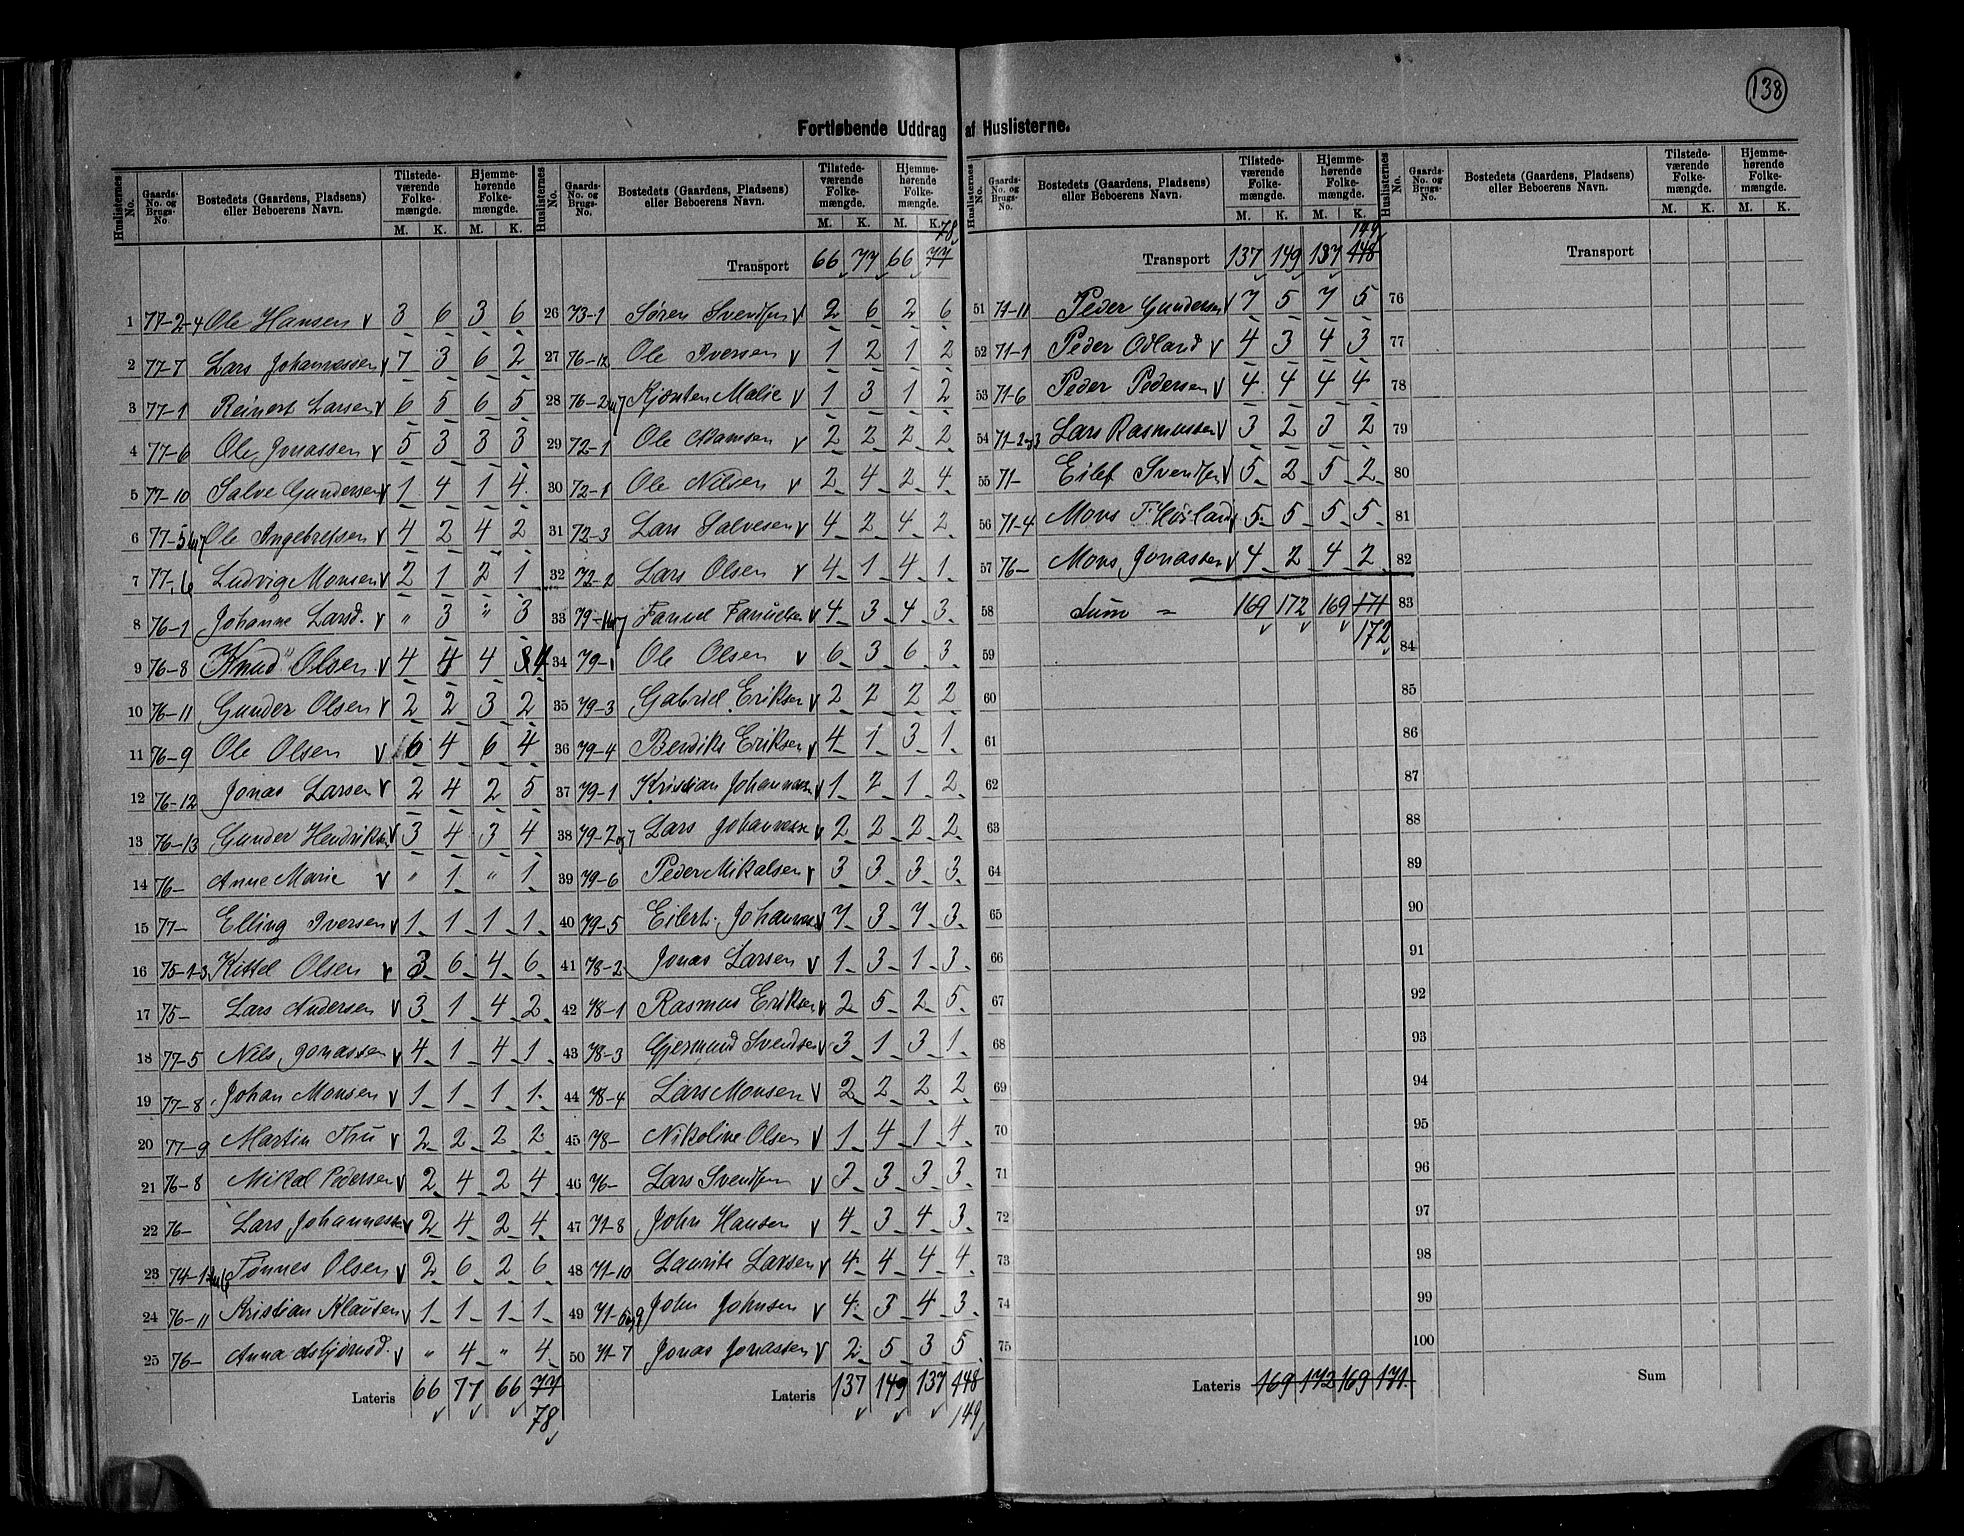 138
Fortløbende Uddrag af Huslisterne.
Huslisternes No. Gaards-No. og Brugs-No. Bostedets (Gaardens, Pladsens) eller Beboerens Navn. Tilstedeværende Folkemængde. M. K. Hjemmehørende Folkemængde. M. K.
1 77-2-4 Ole Hansen v 3 6 3 6
2 77-7 Lars Johannessen v 7 3 6 2
3 77-1 Reinert Larsen v 6 5 6 5
4 77-6 Ole Jonassen v 5 3 3 3
5 77-10 Salve Gundersen v 1 4 1 4
6 77-5 Ole Ingebretsen v 4 2 4 2
7 77-6 Ludvig Monsen v 2 1 2 1
8 76-1 Johanne Larsd. v " 3 " 3
9 76-8 Knud Olsen v 4 4 4 4
10 76-11 Gunder Olsen v 2 2 3 2
11 76-9 Ole Olsen v 6 4 6 4
12 76-12 Jonas Larsen v 2 4 2 5
13 76-13 Gunder Hendriksen v 3 4 3 4
14 76- Anne Marie v " 1 " 1
15 77- Elling Iversen v 1 1 1 1
16 75-1-3 Kittel Olsen v 3 6 4 6
17 75- Lars Andersen v 3 1 4 2
18 77-5 Nels Jonassen v 4 1 4 1
19 77-8 Johan Monsen v 1 1 1 1
20 77-9 Martin Thu v 2 2 2 2
21 76-8 Mikal Pedersen v 2 4 2 4
22 76- Lars Johannessen v 2 4 2 4
23 74-1 Tønnes Olsen v 2 6 2 6
24 76-11 Kristian Klausen v 1 1 1 1
25 76- Anna Asbjørnsd. v " 4 " 4
Lateris 66 77 66 77
78
Huslisternes No. Gaards-No. og Brugs-No. Bostedets (Gaardens, Pladsens) eller Beboerens Navn. Tilstedeværende Folkemængde. M. K. Hjemmehørende Folkemængde. M. K.
78
Transport 66 77 66 77
26 73-1 Søren Svendsen v 2 6 2 6
27 76-12 Ole Iversen v 1 2 1 2
28 76-2 og 7 Kjersten Malie v 1 3 1 2
29 72-1 Ole Hansen v 2 2 2 2
30 72-1 Ole Nilsen v 2 4 2 4
31 72-3 Lars Salvesen v 4 2 4 2
32 72-2 Lars Olsen v 4 1 4 1
33 79-1 og 7 Fanuel Fanuelsen v 4 3 4 3
34 79-1 Ole Olsen v 6 3 6 3
35 79-3 Gabriel Eriksen v 2 2 2 2
36 79-4 Berdike Eriksen v 4 1 3 1
37 79-1 Kristian Johannessen v 1 2 1 2
38 79-2 og 7 Lars Johannesse v 2 2 2 2
39 79-6 Peder Mikalsen v 3 3 3 3
40 79-5 Eilert Johannessen v 7 3 7 3
41 78-2 Jonas Larsen v 1 3 1 3
42 78-1 Rasmus Eriksen v 2 5 2 5
43 78-3 Gjermund Svendsen v 3 1 3 1
44 78-4 Lars Monsen v 2 2 2 2
45 78- Nikoline Olsen v 1 4 1 4
46 76- Lars Svendsen v 3 3 3 3
47 71-8 John Hansen v 4 3 4 3
48 71-10 Laurits Larsen v 4 4 4 4
49 71-6 og 9 John Johnsen v 4 3 4 3
50 71-7 Jonas Jonassen v 2 5 3 5
Lateris 137 149 137 148
149
Huslisternes No. Gaards-No. og Brugs-No. Bostedets (Gaardens, Pladsens) eller Beboerens Navn. Tilstedeværende Folkemængde. M. K. Hjemmehørende Folkemængde. M. K.
149
Transport 137 149 137 148
51 71-11 Peder Gundersen v 7 5 7 5
52 71-1 Peder Odland v 4 3 4 3
53 71-6 Peder Pedersen v 4 4 4 4
54 71-2 og 3 Lars Rasmussen v 3 2 3 2
55 71- Eilef Svendsen v 5 2 5 2
56 71-4 Mons T. Høiland v 5 5 5 5
57 76- Mons Jonassen v 4 2 4 2
58 Sum = 169 172 169 171
172
59
60
61
62
63
64
65
66
67
68
69
70
71
72
73
74
75
Lateris 169 172 169 171
Huslisternes No. Gaards-No. og Brugs-No. Bostedets (Gaardens, Pladsens) eller Beboerens Navn. Tilstedeværende Folkemængde. M. K. Hjemmehørende Folkemængde. M. K.
Transport
76
77
78
79
80
81
82
83
84
85
86
87
88
89
90
91
92
93
94
95
96
97
98
99
100
Sum